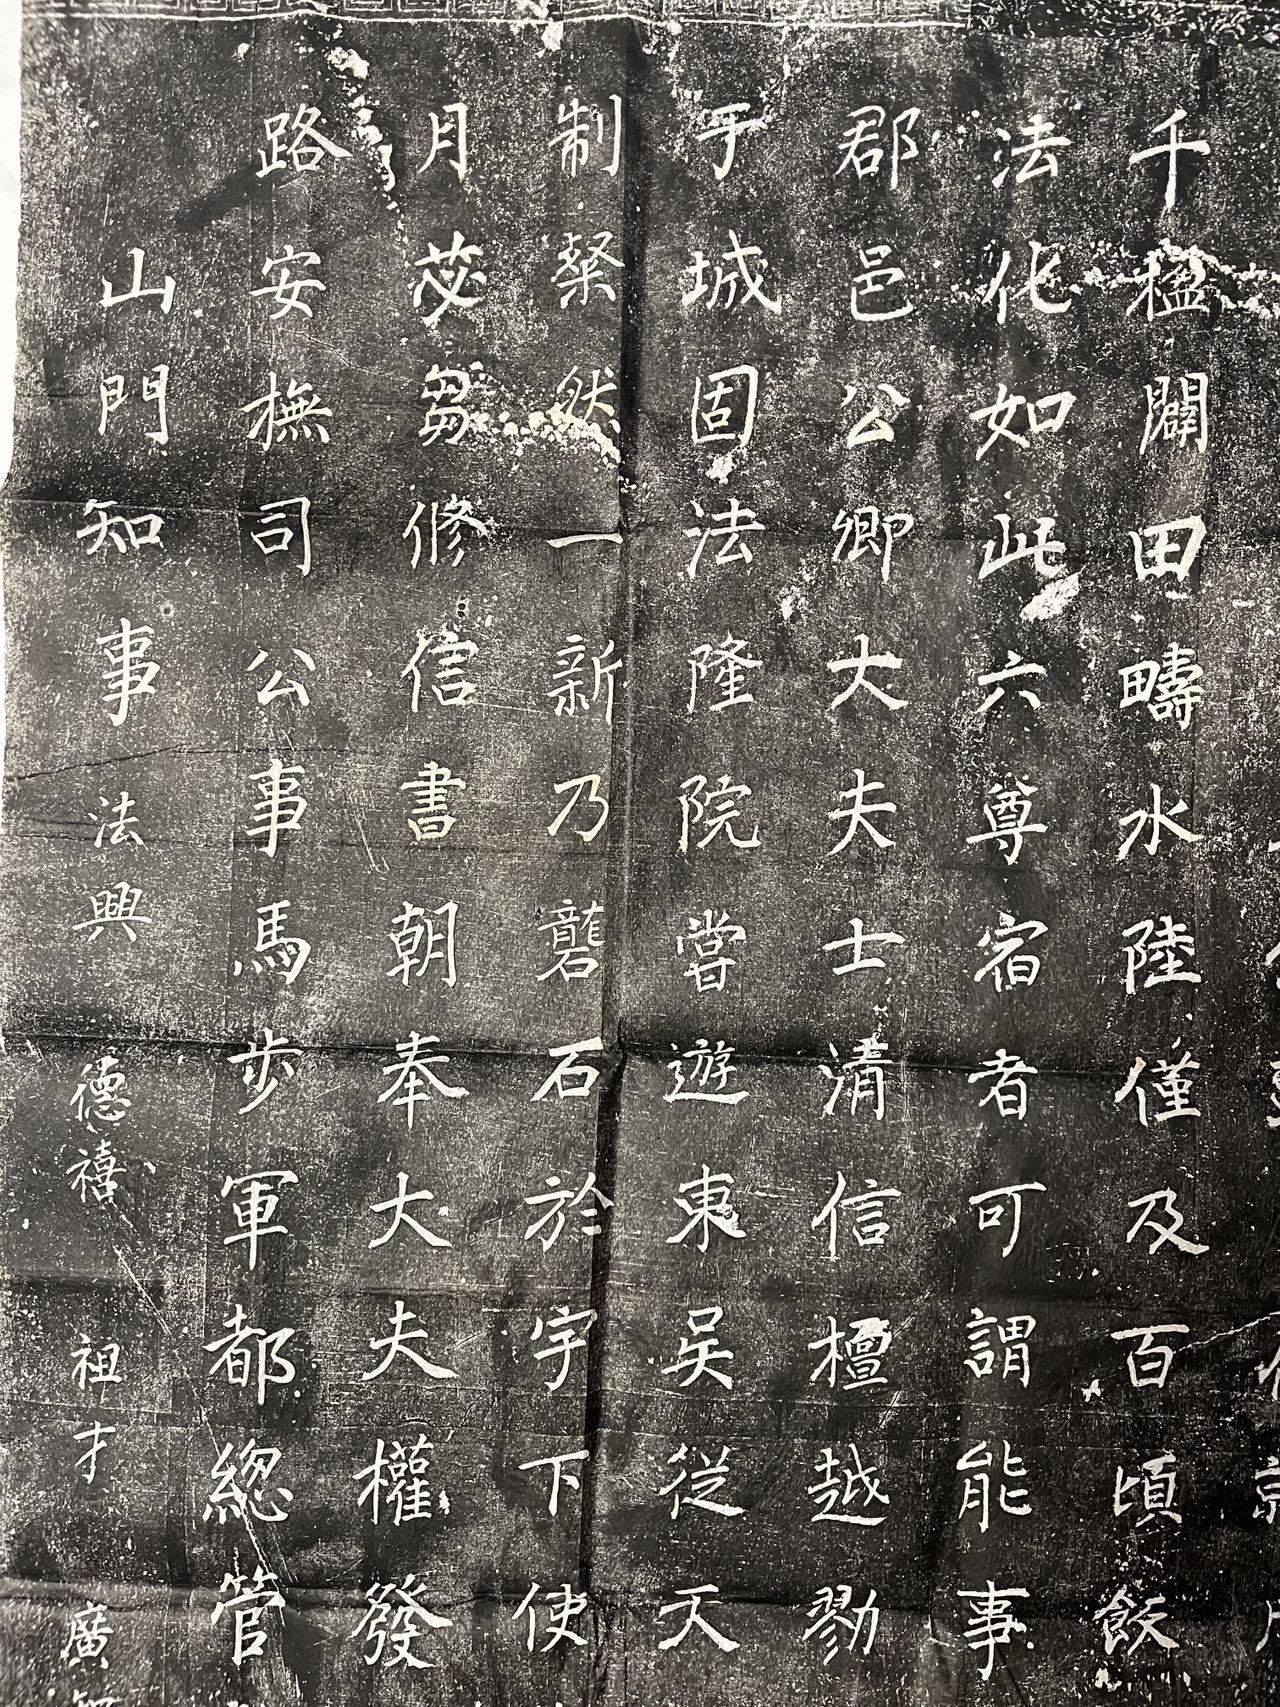 千楹闢田疇水陸僅及百頃飯
法化如此六尊宿者可謂能事
郡邑公卿大夫士清信檀越勠
于城固法隆院嘗遊東吳從天
制粲然一新乃礱石於宇下使
月苾蒭修信書朝奉大夫權發
路安撫司公事馬步軍都總管
山門知事法興 德禧 祖才 廣